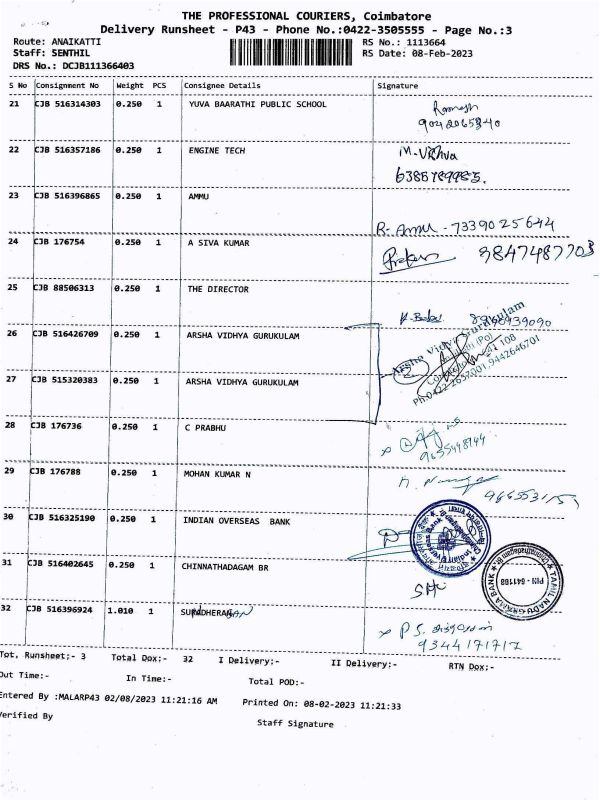 THE PROFESSIONAL COURIERS, Coimbatore
Delivery Runsheet - P43 - Phone No.:0422-3505555 - Page No.:3
Route: ANAIKATTI RS No.: 1113664
Staff: SENTHIL RS Date: 08-Feb-2023
DRS No.: DCJB111366403
S No Consignment No Weight PCS Consignee Details Signature
21 CJB 516314303 0.250 1 YUVA BAARATHI PUBLIC SCHOOL Ramesh
22 CJB 516357186 0.250 1 ENGINE TECH M. Vishva
23 CJB 516396865 0.250 1 AMMU
R. Ammu - 7339025644
24 CJB 176754 0.250 1 A SIVA KUMAR 9847487703
25 CJB 88506313 0.250 1 THE DIRECTOR
26 CJB 516426709 0.250 1 ARSHA VIDHYA GURUKULAM
Arsha Vidya Gurukulam
27 CJB 515320383 0.250 1 ARSHA VIDHYA GURUKULAM
28 CJB 176736 0.250 1 C PRABHU
29 CJB 176788 0.250 1 MOHAN KUMAR N
30 CJB 516325190 0.250 1 INDIAN OVERSEAS BANK
31 CJB 516402645 0.250 1 CHINNATHADAGAM BR
TAMIL NADU GRAMA BANK
PIN - 641108
32 CJB 516396924 1.010 1
P S.
9344171717
Tot. Runsheet:- 3 Total Dox:- 32 I Delivery:- II Delivery:- RTN Dox:-
Out Time:- In Time:- Total POD:-
Entered By :MALARP43 02/08/2023 11:21:16 AM Printed On: 08-02-2023 11:21:33
Verified By Staff Signature